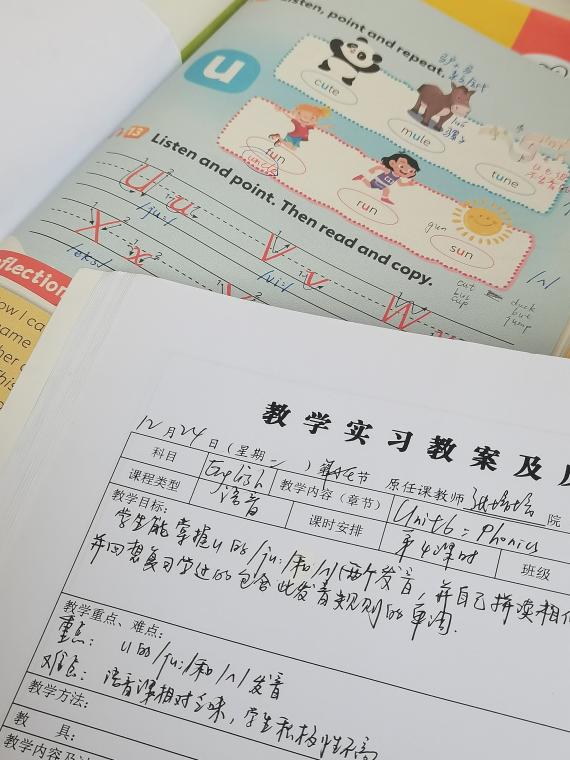 Listen, point and repeat.
u
cute
mule
tune
fun
run
sun
gun
13 Listen and point. Then read and copy.
U u /ju:/
V v /vi:/
W
X x /eks/
/ʌ/
cut
but
cup
duck
but
jump
flection
ow I ca
ame
her
his
教学实习教案及
12月24日(星期二)第 节 原任课教师 院
科目 English 教学内容(章节) Unit6: Phonics
课程类型 语音 课时安排 第4课时 班级
教学目标:
学生能掌握u的/ju:/和/ʌ/两个发音,并自己拼读相
并回想复习学过的包含此发音规则的单词.
教学重点、难点:
重点: u的/ju:/和/ʌ/发音
难点: 语音课相对乏味,学生积极性不高
教学方法:
教 具:
教学内容及